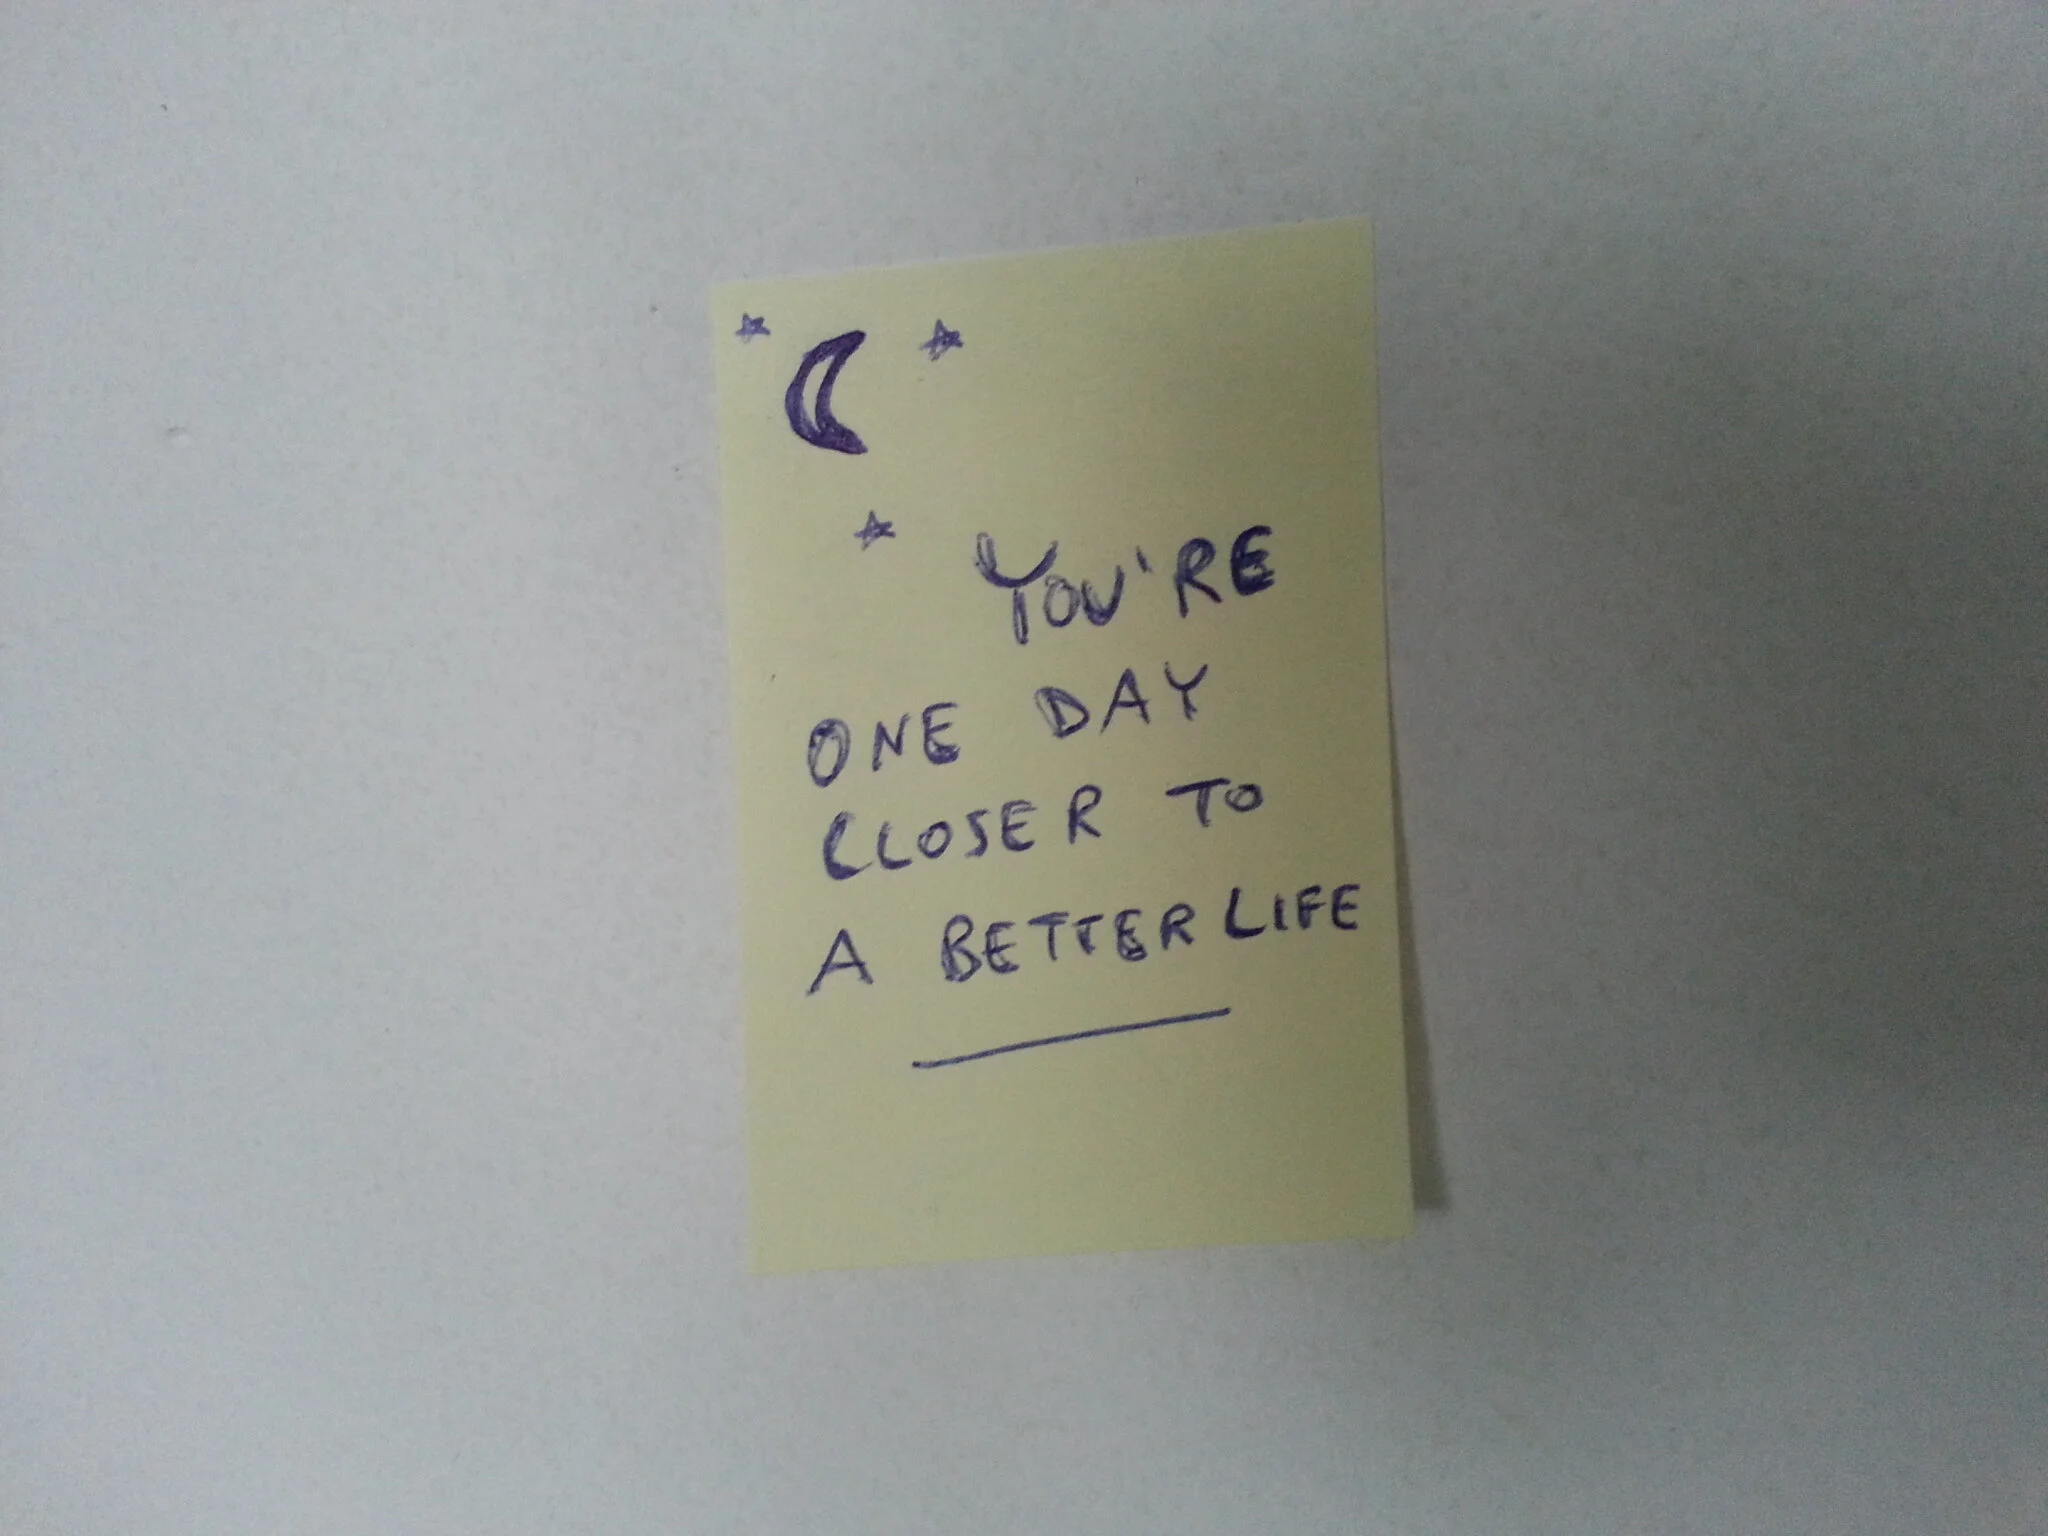 YOU'RE
ONE DAY
CLOSER TO
A BETTER LIFE